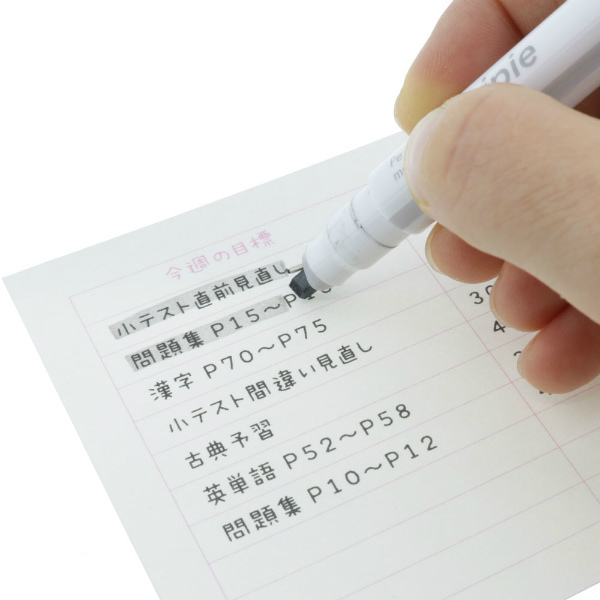 今週の目標
小テスト直前見直し
問題集 P15～P
漢字 P70～P75
小テスト間違い見直し
古典予習
英単語 P52～P58
問題集 P10～P12